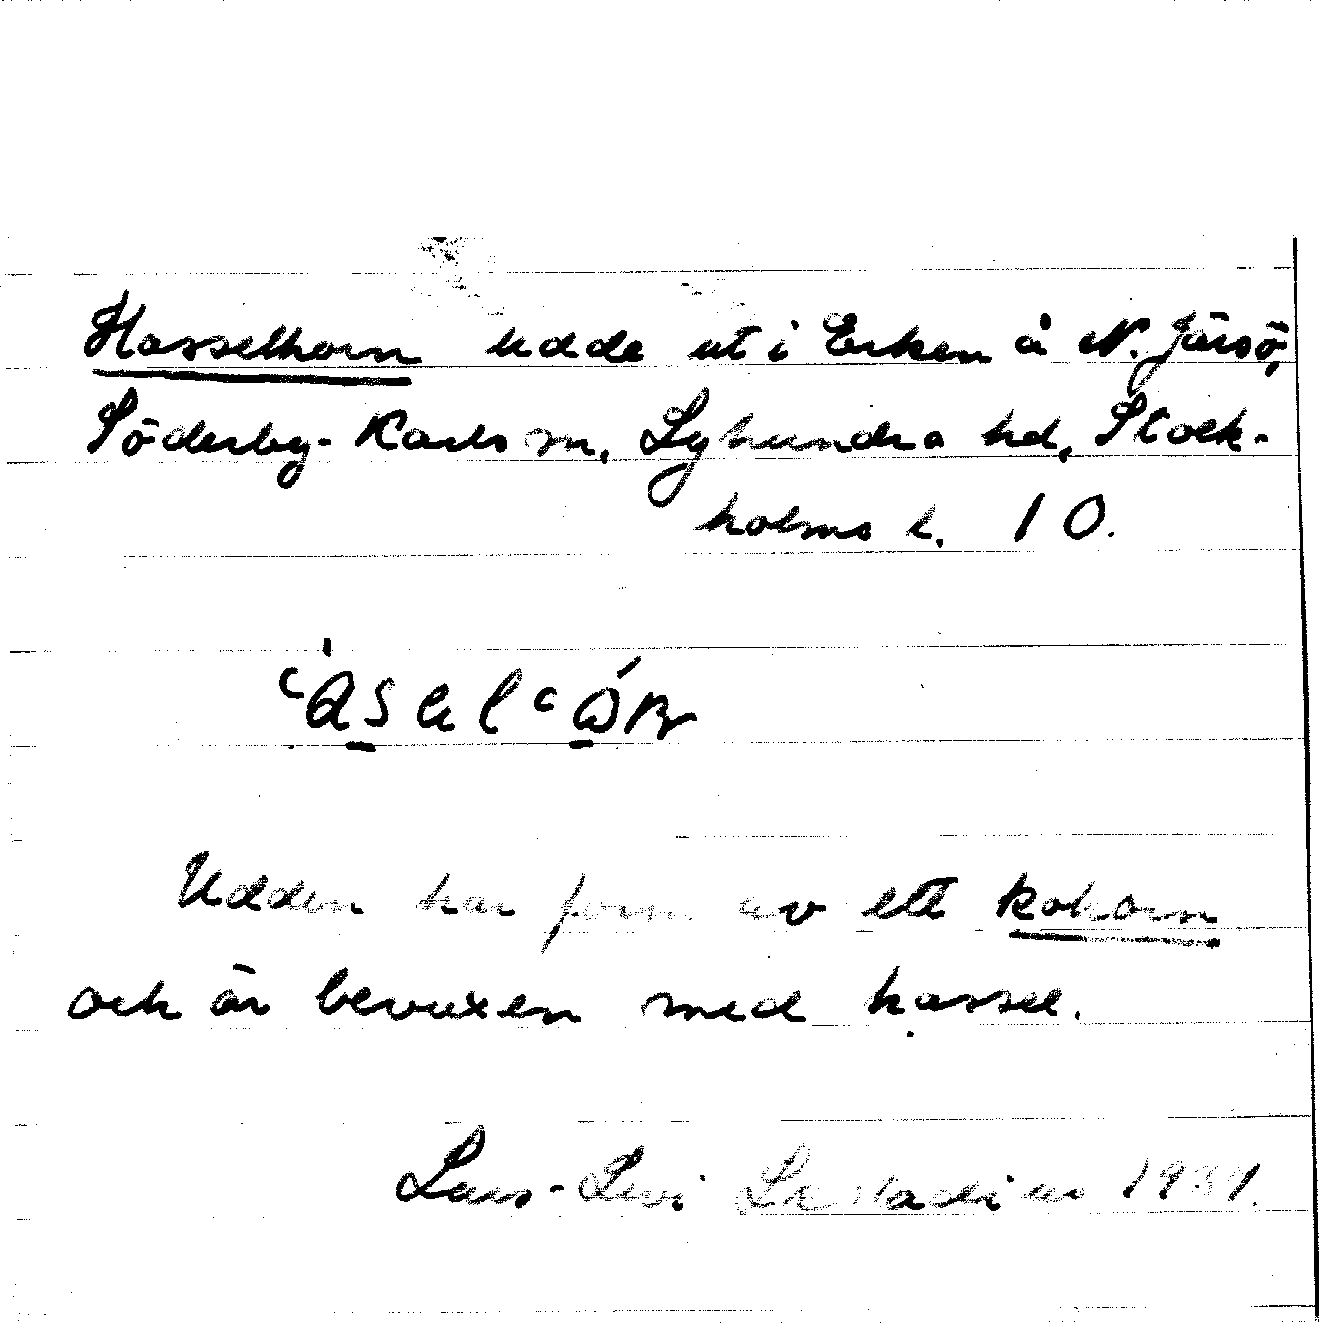 Hasselhorn udde ut i Erken å N. Järsö,
Söderby-Karls sn, Lyhundra hd, Stock-
holms l. 10.
Udden har form av ett kohorn
och är bevuxen med hassel.
Lars-Levi Læstadius